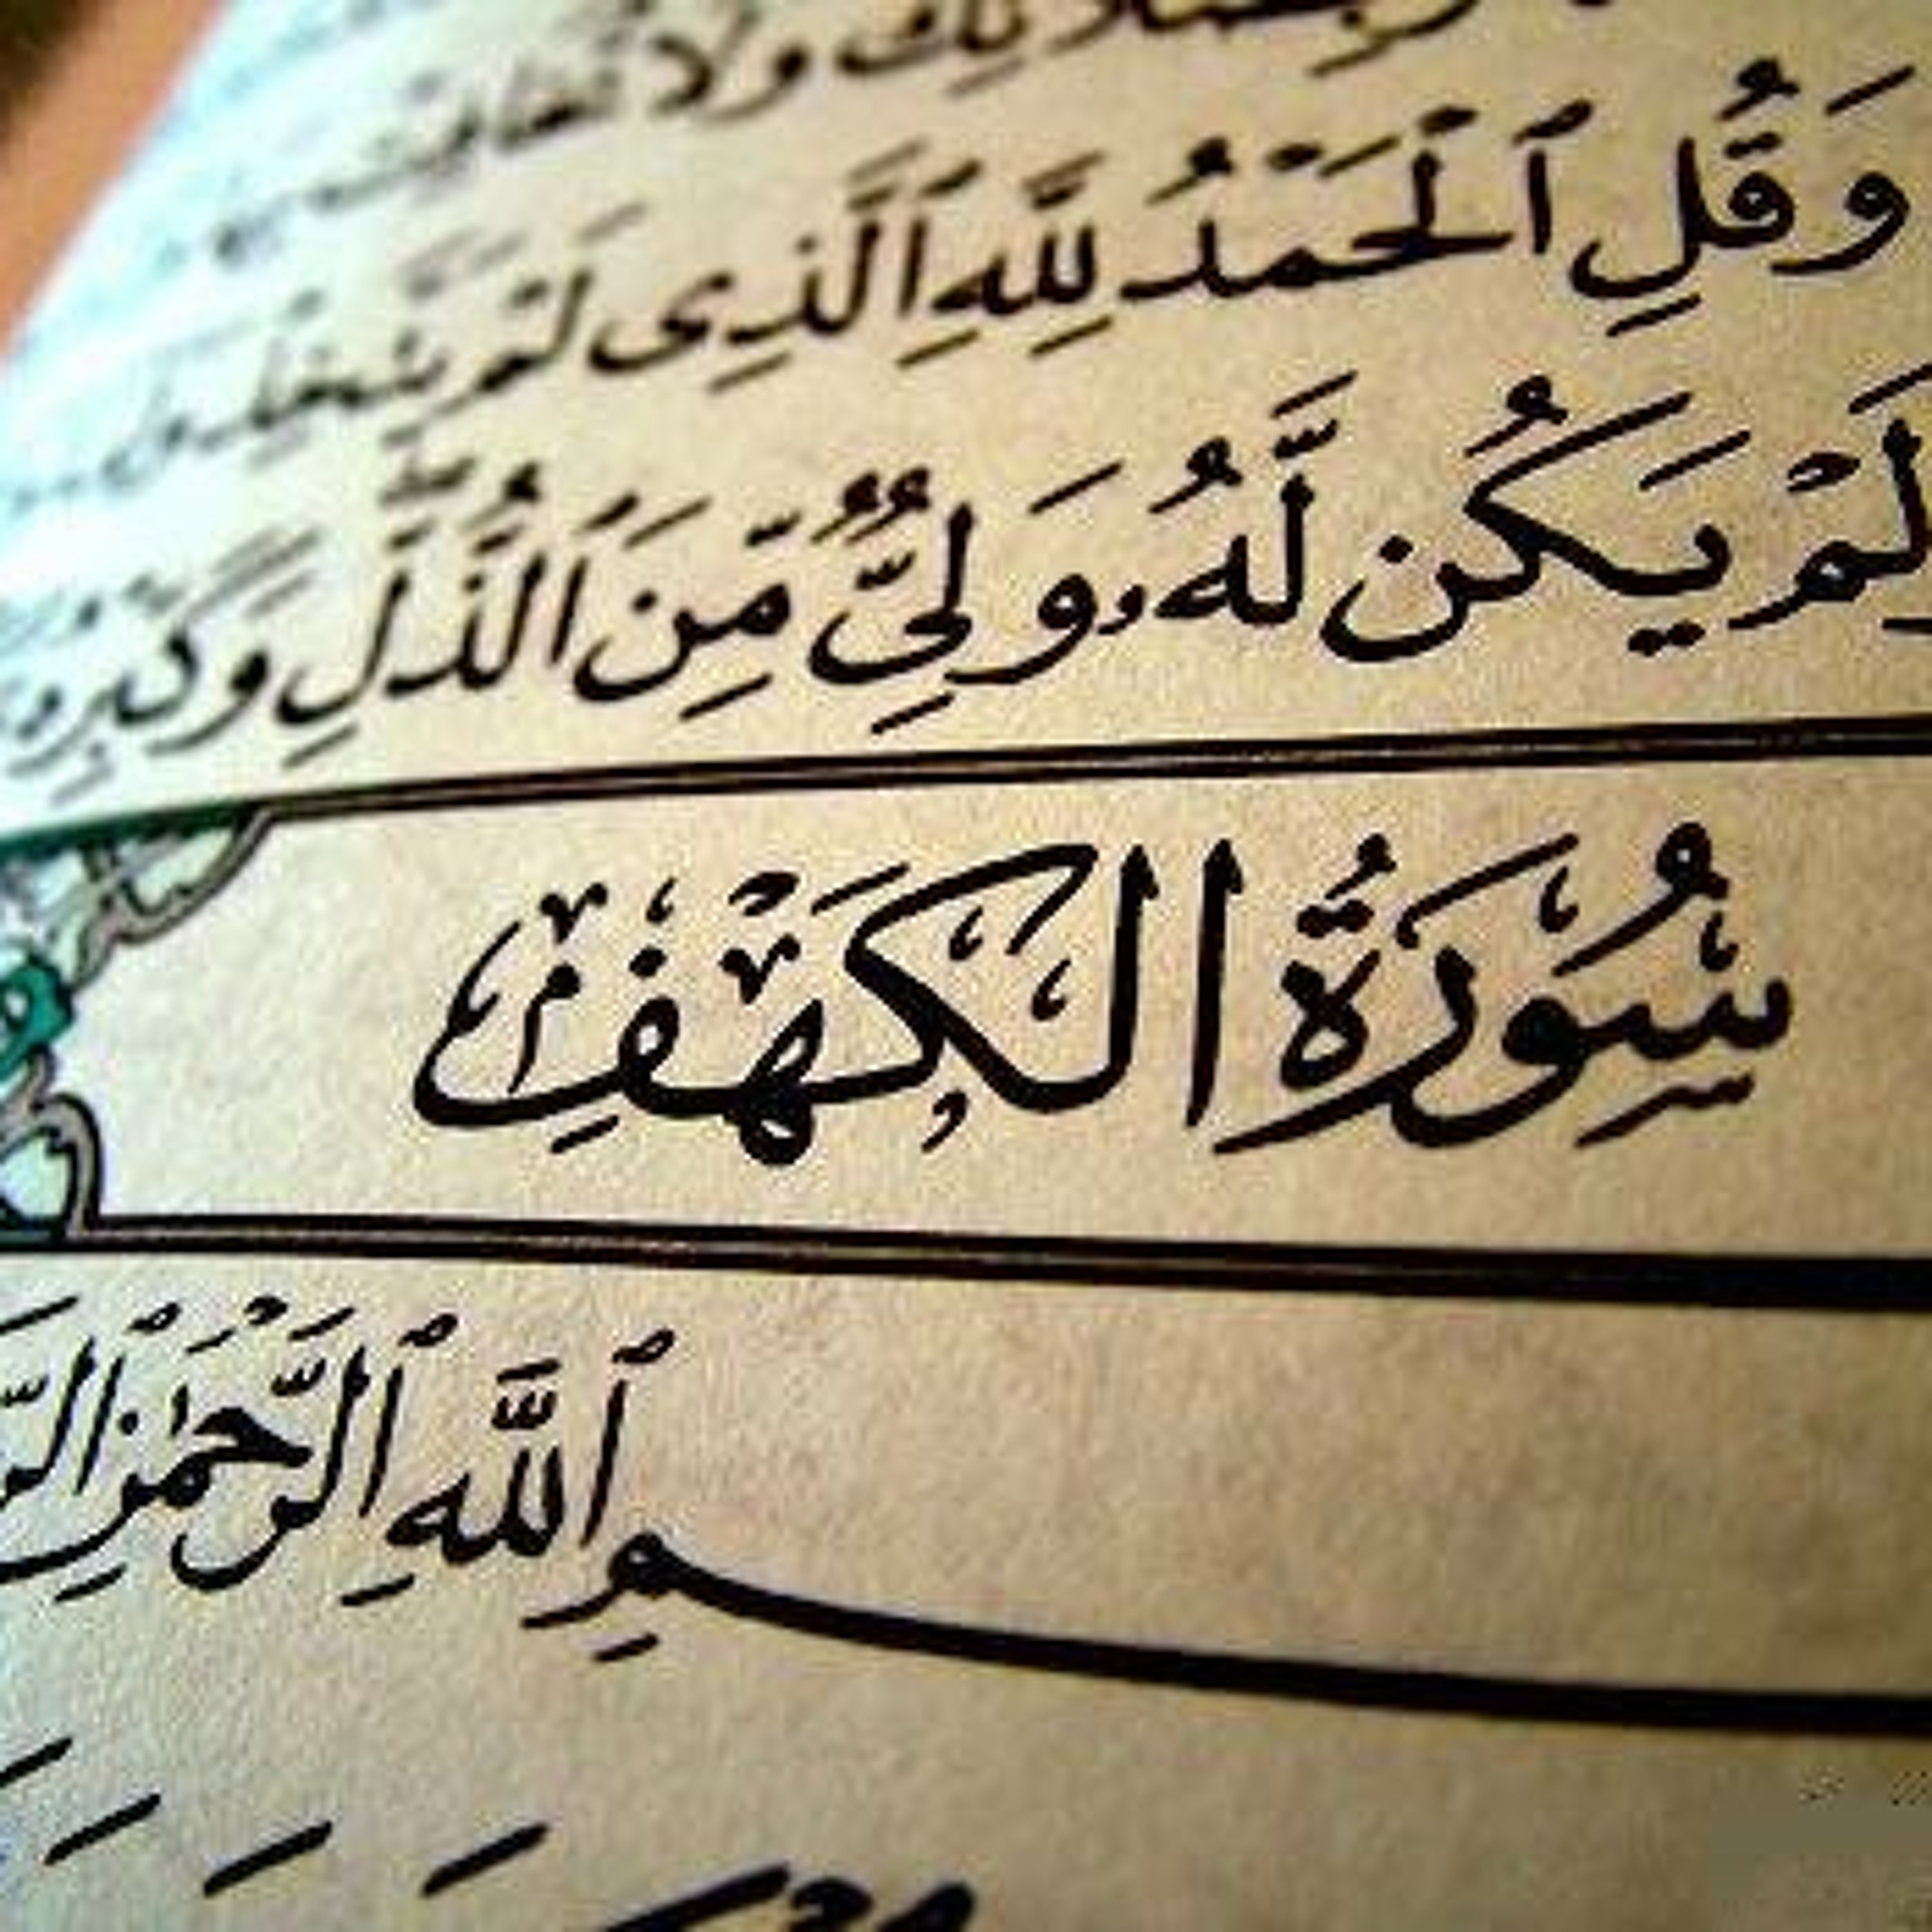 بِصَلَاتِكَ وَلَا تُخَافِتْ
وَقُلِ ٱلْحَمْدُ لِلَّهِ ٱلَّذِى لَمْ يَتَّخِذْ
لَمْ يَكُن لَّهُۥ وَلِىٌّ مِّنَ ٱلذُّلِّ وَكَبِّرْهُ
سُورَةُ الكَهْفِ
ـمِ ٱللَّهِ ٱلرَّحْمَٰنِ